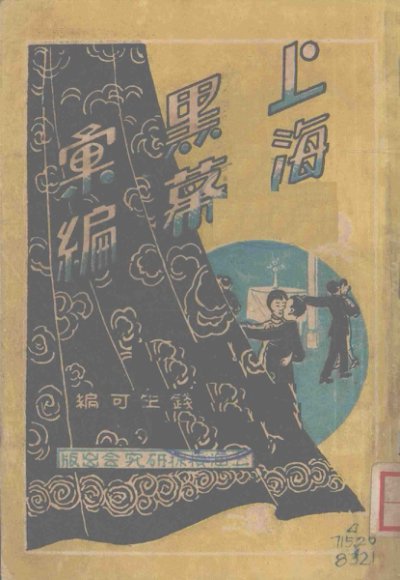 上海
黑幕
彙編
錢生可編
上海偵探研究會出版
71520
8321